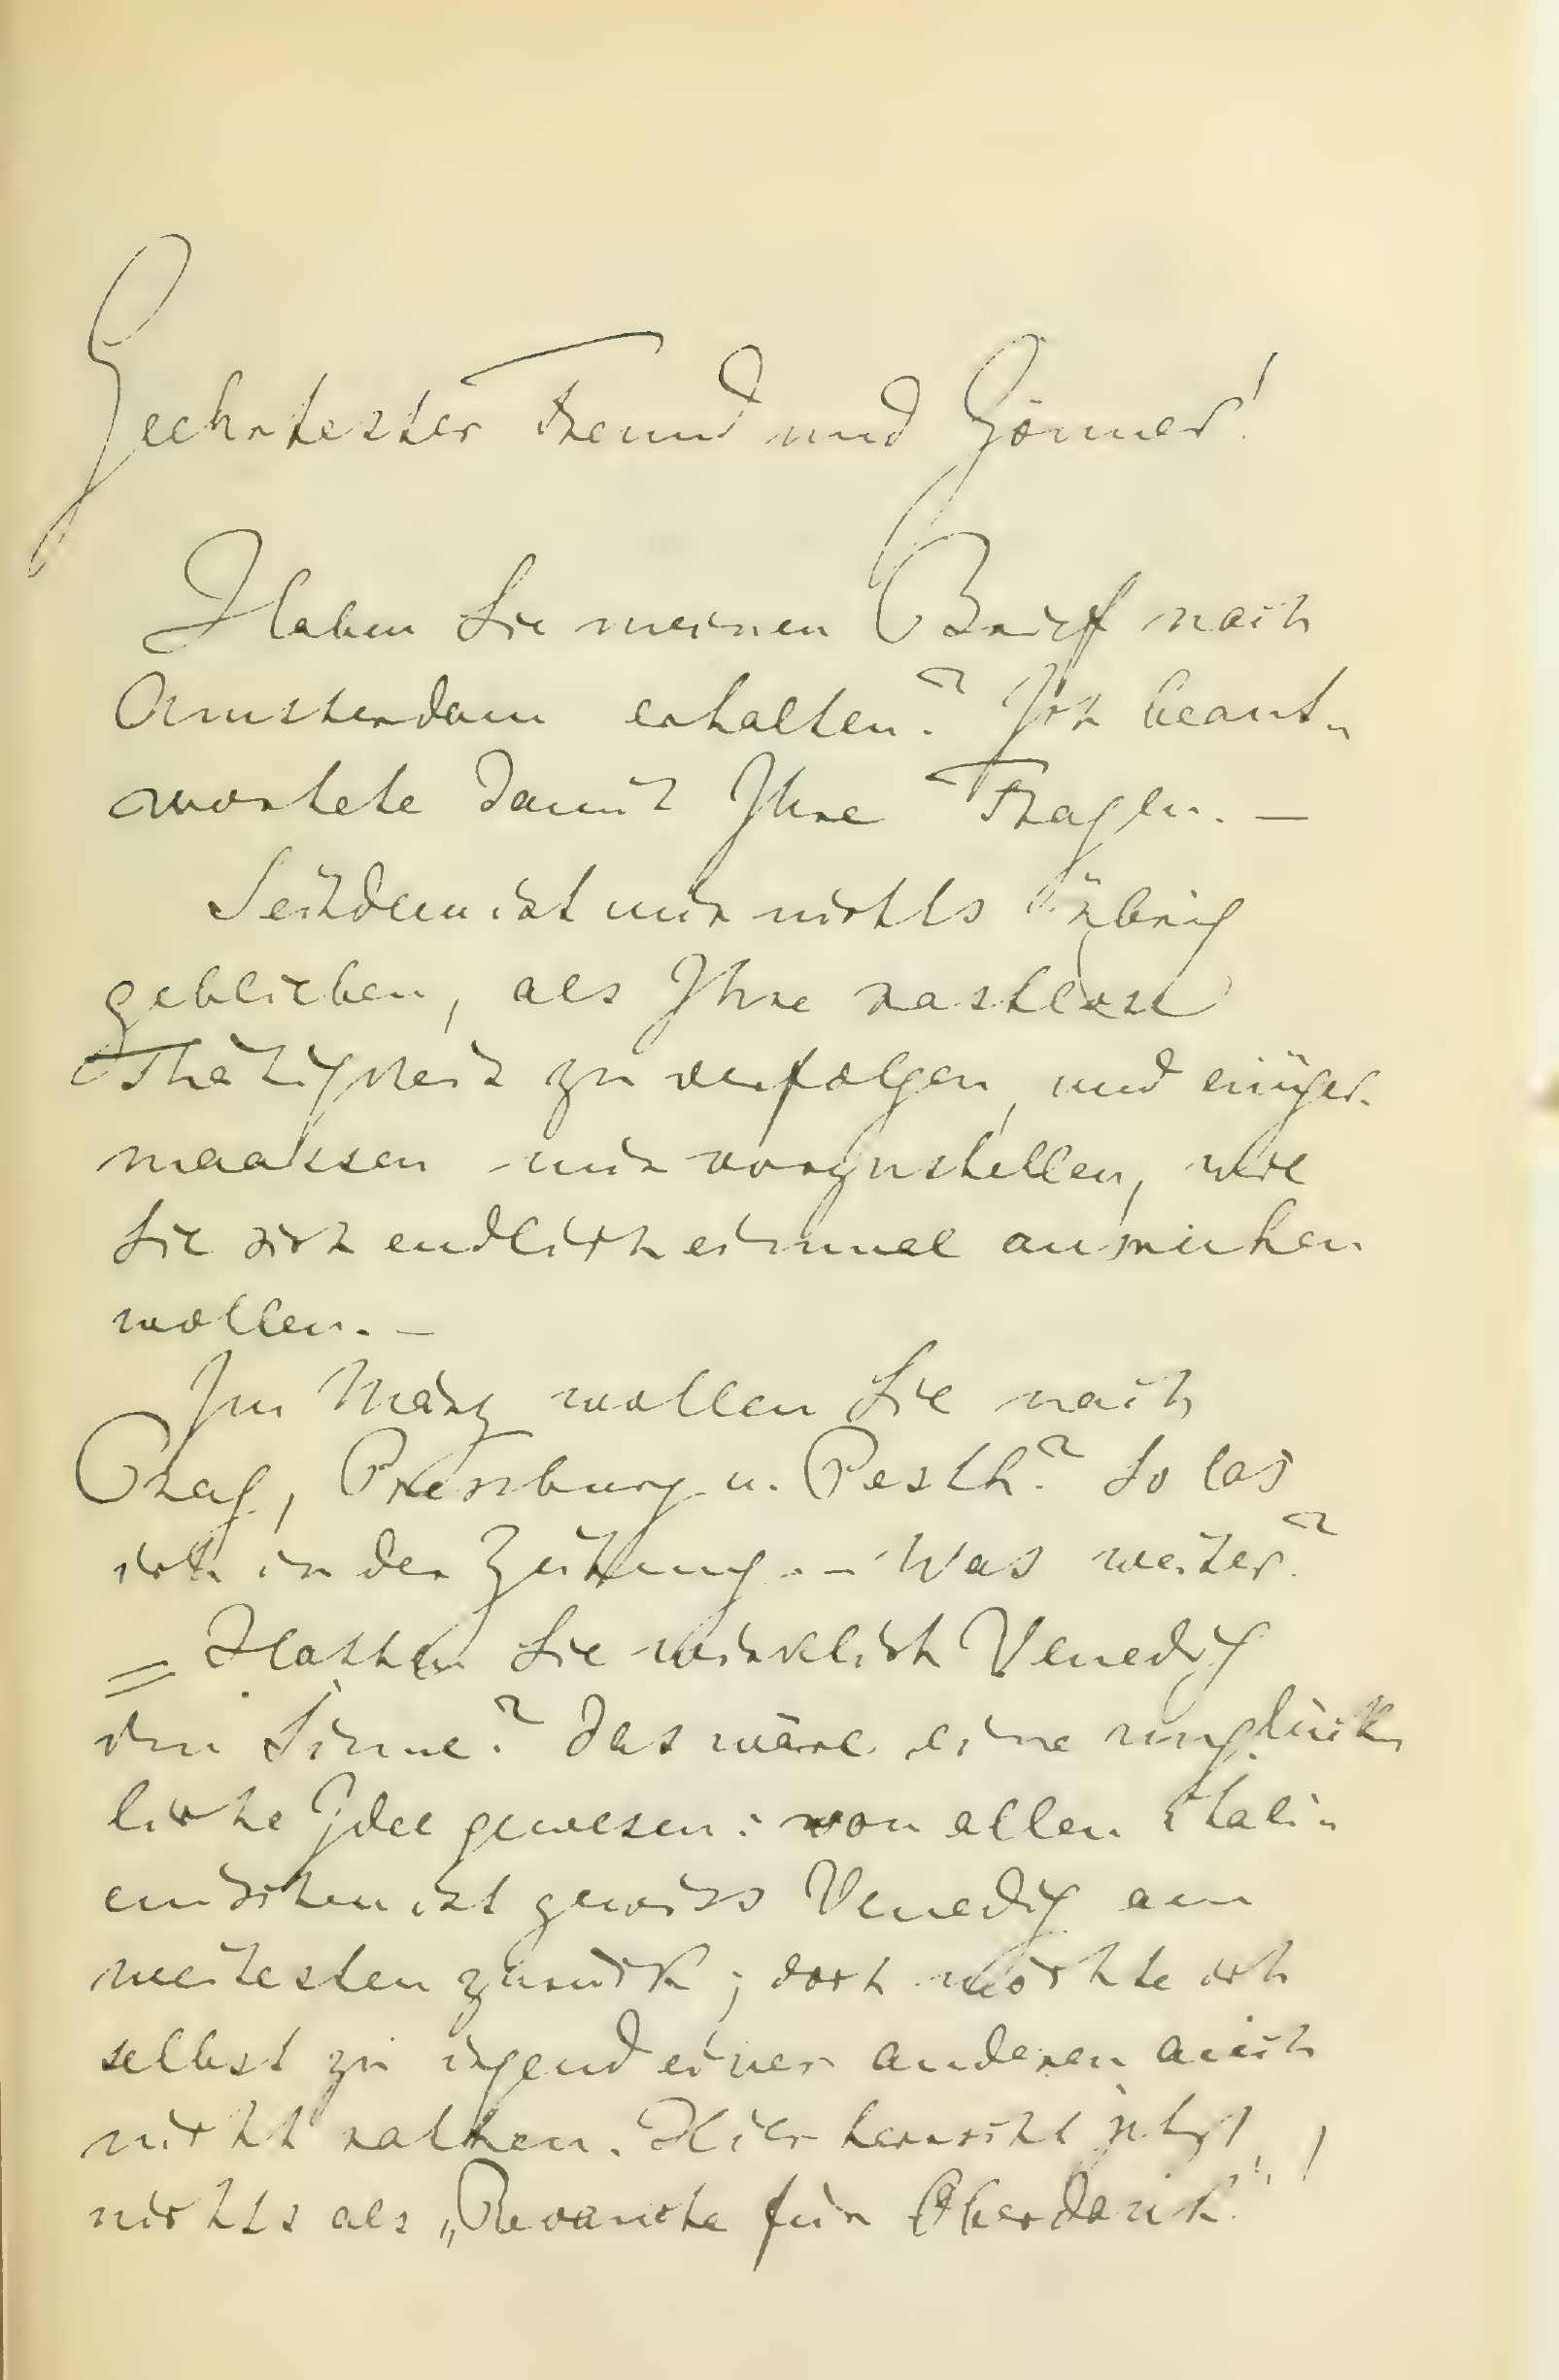 Geehrtester Freund und Gönner!
Haben Sie meinen Brief nach
Amsterdam erhalten? Ich beant-
wortete damit Ihre Fragen. —
Seitdem ist mir nichts übrig
geblieben, als Ihre rastlose
Thätigkeit zu verfolgen, und einiger-
maassen mir vorzustellen, wie
Sie sich endlich einmal ausruhen
wollen. —
Im März wollen Sie nach
Prag, Pressburg u. Pesth? So las
ich in der Zeitung. — Was weiter?
= Hatten Sie wirklich Venedig
im Sinne? Das wäre eine unglück-
liche Idee gewesen: von allen itali-
enischen ist gewiss Venedig am
weitesten zurück; dort möchte ich
selbst zu irgend einer anderen auch
nicht rathen. Hier herrscht jetzt
nichts als „Revanche für Oberdank"!